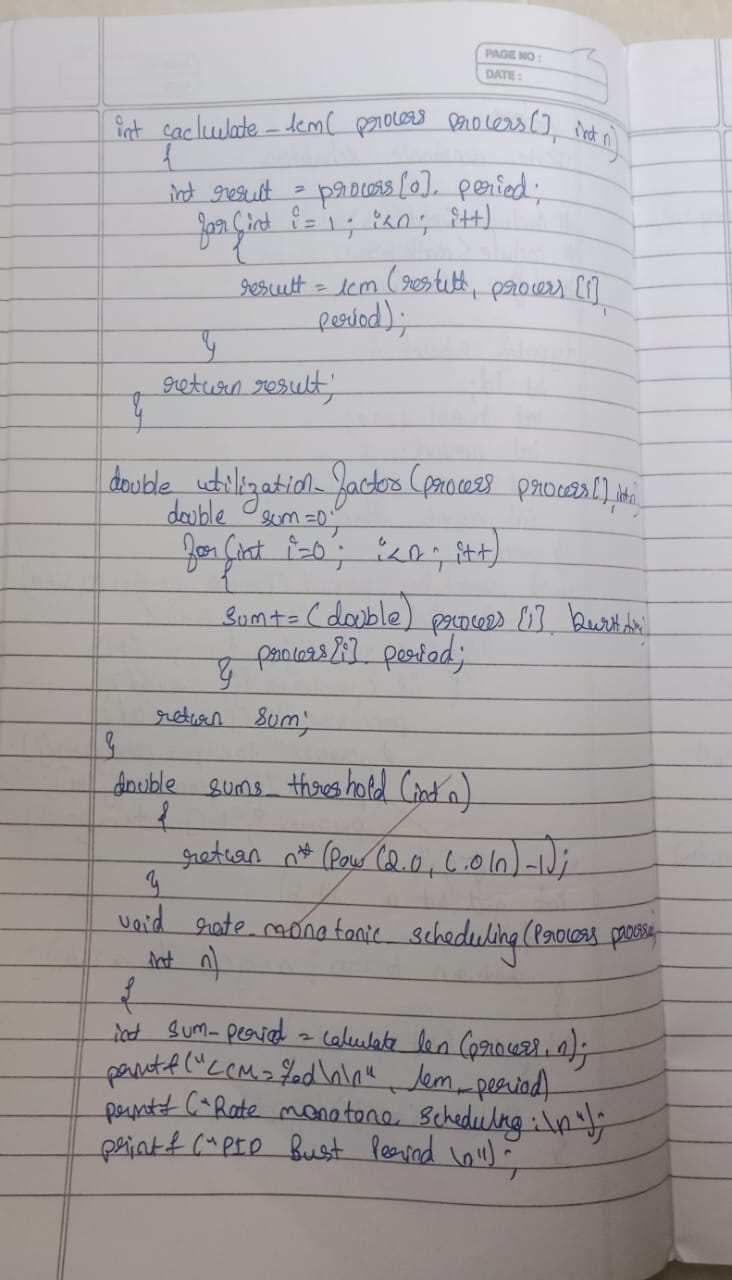 PAGE NO :
DATE :
int caclulate_lcm( process process[], int n)
{
int result = process[0]. period;
for(int i=1; i<n; i++)
{
result = lcm (result, process [i].
period);
}
return result;
}
double utilization_factor (process process[], int n)
double sum=0;
for(int i=0; i<n; i++)
{
sum+=(double) process [i]. burst time
process[i]. period;
}
return sum;
}
double sums_threshold (int n)
{
return n* (Pow (2.0, 1.0/n)-1);
}
void rate_monotonic_scheduling (Process process
int n)
{
int sum_period = calculate len (process, n);
printf("LCM=%d\n\n", lcm_period)
printf ("Rate monotone Scheduling:\n");
printf ("PID Bust Period \n");